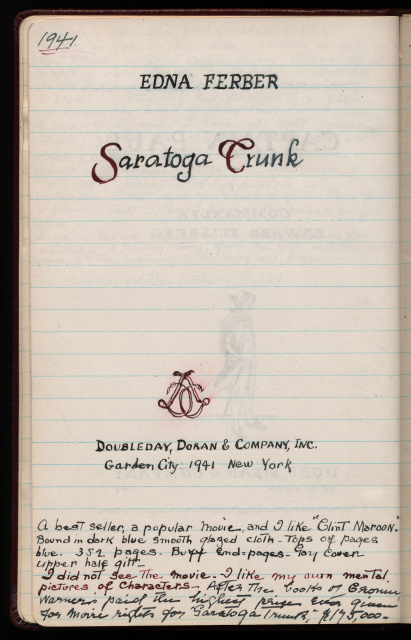 1941
EDNA FERBER
Saratoga Trunk
DOUBLEDAY, DORAN & COMPANY, INC.
Garden City 1941 New York
A best seller, a popular movie, and I like "Clint Maroon".
Bound in dark blue smooth glazed cloth - Tops of pages
blue. 352 pages. Buff end-pages - Gay cover
upper half gilt.
I did not see the movie. I like my own mental
pictures of characters - After the books of
Warners paid the highest price ever given
for movie rights for "Saratoga Trunk," $175,000-